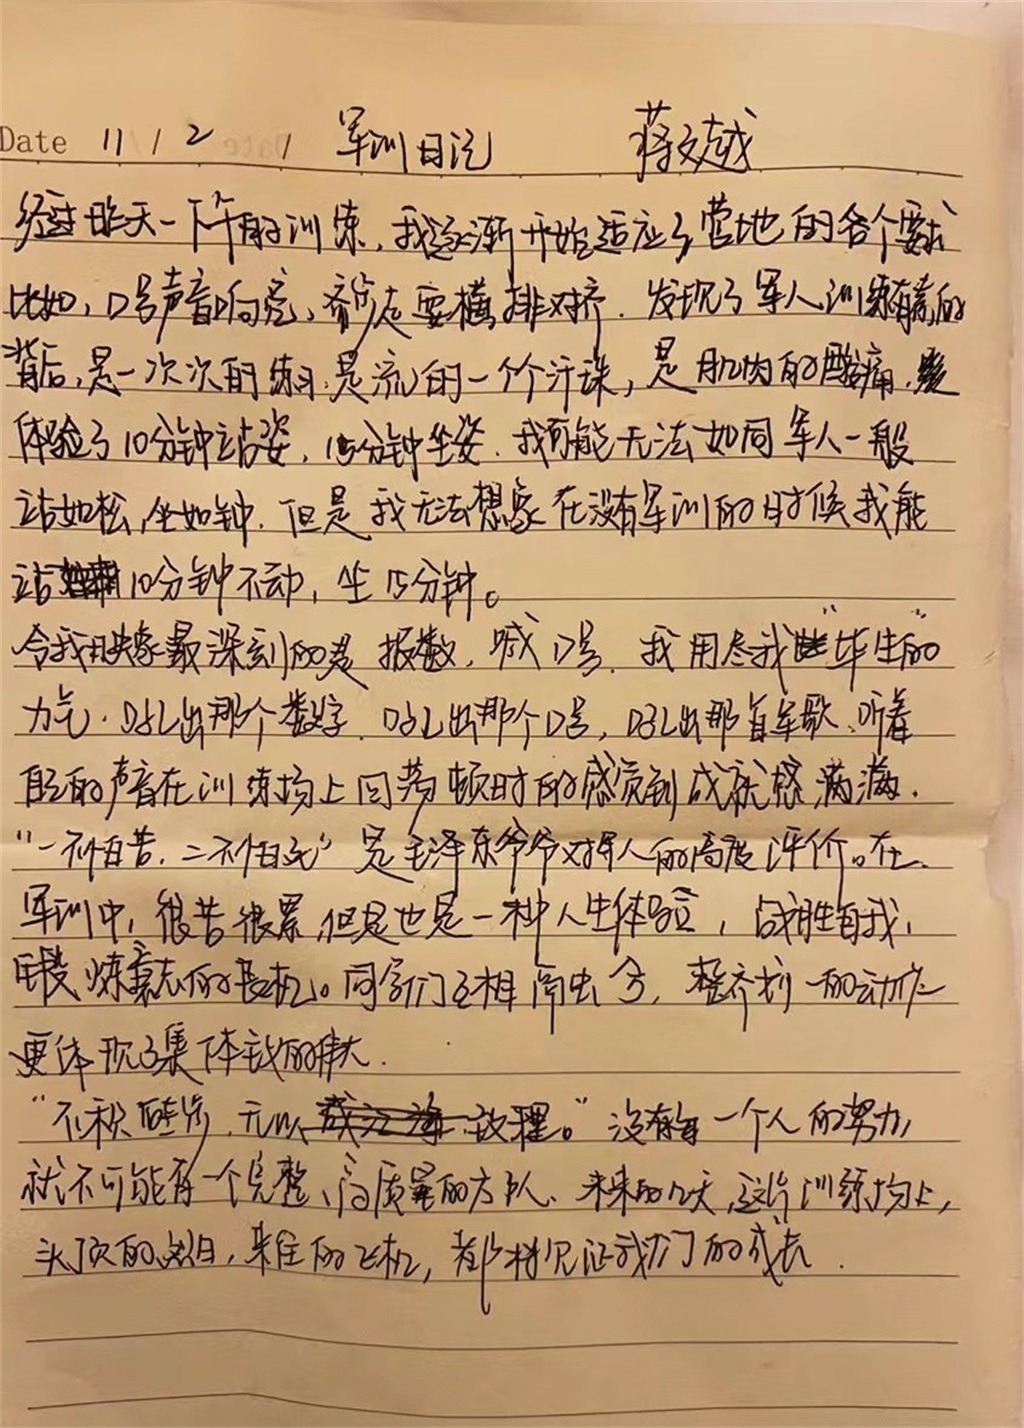 Date 11 / 2 / 军训日记 蒋文越
经过昨天一下午的训练,我逐渐开始适应了营地的各个要求
比如,口号声音响亮,齐步走要横排对齐.发现了军人训练有素的
背后,是一次次的练习,是流的一个个汗珠,是肌肉的酸痛.
体验了10分钟站姿,15分钟坐姿.我可能无法如同军人一般
站如松,坐如钟.但是我无法想象在没有军训的时候我能
站10分钟不动,坐15分钟。
令我印象最深刻的是报数,喊口号.我用尽我"毕生的"
力气.吼出那个数字.吼出那个口号,吼出那首军歌.听着
自己的声音在训练场上回荡顿时的感觉到成就感满满.
"一不怕苦,二不怕死"是毛泽东爷爷对军人的高度评价。在
军训中,很苦很累,但是也是一种人生体验,战胜自我,
锻炼意志的良机。同学们互相,整齐划一的动作
更体现了集体的伟大.
"不积跬步,无以致理。"没有每一个人的努力,
就不可能有一个完整、高质量的方队.未来的几天,这片训练场上,
头顶的烈日,来往的飞机,都将见证我们的成长.